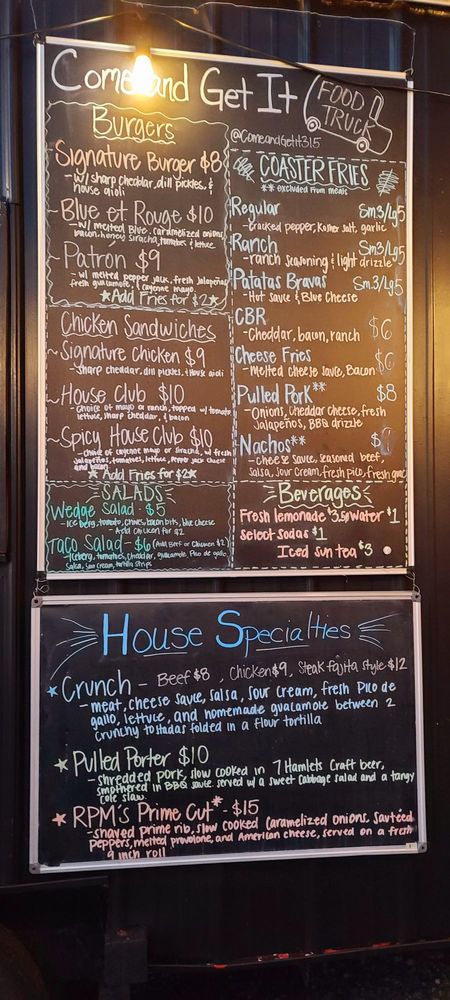 Come and Get It
FOOD
TRUCK
@ComeandGetit315
Burgers
Signature Burger $8
- w/ sharp cheddar, dill pickles, &
house aioli
~ Blue et Rouge $10
- w/ melted Blue, caramelized onions,
bacon, honey siracha, tomatoes & lettuce
~ Patron $9
- w/ melted pepper jack, fresh Jalapeños
fresh guacamole, & cayenne mayo.
★Add Fries for $2★
Chicken Sandwiches
~ Signature Chicken $9
- sharp cheddar, dill pickles, & House aioli
~ House Club $10
- choice of mayo or ranch, topped w/ tomato
lettuce, sharp cheddar, & bacon
~ Spicy House Club $10
- choice of cayenne mayo or siracha, w/ fresh
jalapeños, tomatoes, lettuce, pepper jack cheese
and bacon
★ Add Fries for $2★
SALADS
Wedge Salad - $5
- Iceberg, tomato, chives, bacon bits, blue cheese
- Add chicken for $2
Taco Salad - $6 (Add Beef or Chicken $2)
- Iceberg, tomatoes, cheddar, guacamole, Pico de gallo,
Salsa, Sour Cream, tortilla strips
COASTER FRIES
** excluded from meals
Regular Sm3/Lg5
- cracked pepper, Kosher salt, garlic
Ranch Sm3/Lg5
- ranch seasoning & light drizzle
Patatas Bravas Sm3/Lg5
- Hot sauce & Blue Cheese
CBR $6
- Cheddar, bacon, ranch
Cheese Fries $6
- Melted cheese sauce, Bacon
Pulled Pork** $8
- Onions, Cheddar cheese, fresh
Jalapeños, BBQ drizzle
Nachos** $
- cheese sauce, seasoned beef,
salsa, sour cream, fresh pico, fresh guac
Beverages
Fresh lemonade $3.50 water $1
select sodas $1
Iced sun tea $3
House Specialties
★ Crunch - Beef $8 , Chicken $9, Steak fajita style $12
- meat, cheese sauce, salsa, sour cream, fresh Pico de
gallo, lettuce, and homemade guacamole between 2
crunchy tostadas folded in a flour tortilla
★ Pulled Porter $10
- shredded pork, slow cooked in 7 Hamlets craft beer,
smothered in BBQ sauce. served w/ a sweet cabbage salad and a tangy
cole slaw.
★ RPM's Prime Cut* - $15
- shaved prime rib, slow cooked caramelized onions, sautéed
peppers, melted provolone, and American cheese, served on a fresh
9 inch roll